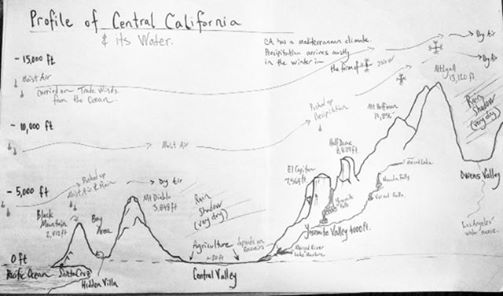 Profile of Central California
& its Water.
CA has a mediterranean climate.
Precipitation arrives mostly
in the winter in
the form of snow
Dry Air
- 15,000 ft
Moist Air
Carried on Trade Winds
from the Ocean.
Mt Lyell
13,120 ft.
Rain
Shadow
(very dry)
Picked up
Precipitation
Mt Hoffman
- 10,000 ft
Moist Air
Half Dome
8,829 ft
El Capitan
7,569 ft
Owens Valley
- 5,000 ft
Picked up
Moist Air & Rain
Dry Air
Mt Diablo
3,848 ft
Rain
Shadow
(very dry)
Nevada Falls
Vernal Falls
Yosemite
Falls
Yosemite Valley 4000 ft.
Black
Mountain
Bay
Area
Agriculture
Merced River
Los Angeles
water source.
0 ft
Pacific Ocean
Santa Cruz
Hidden Villa
Central Valley